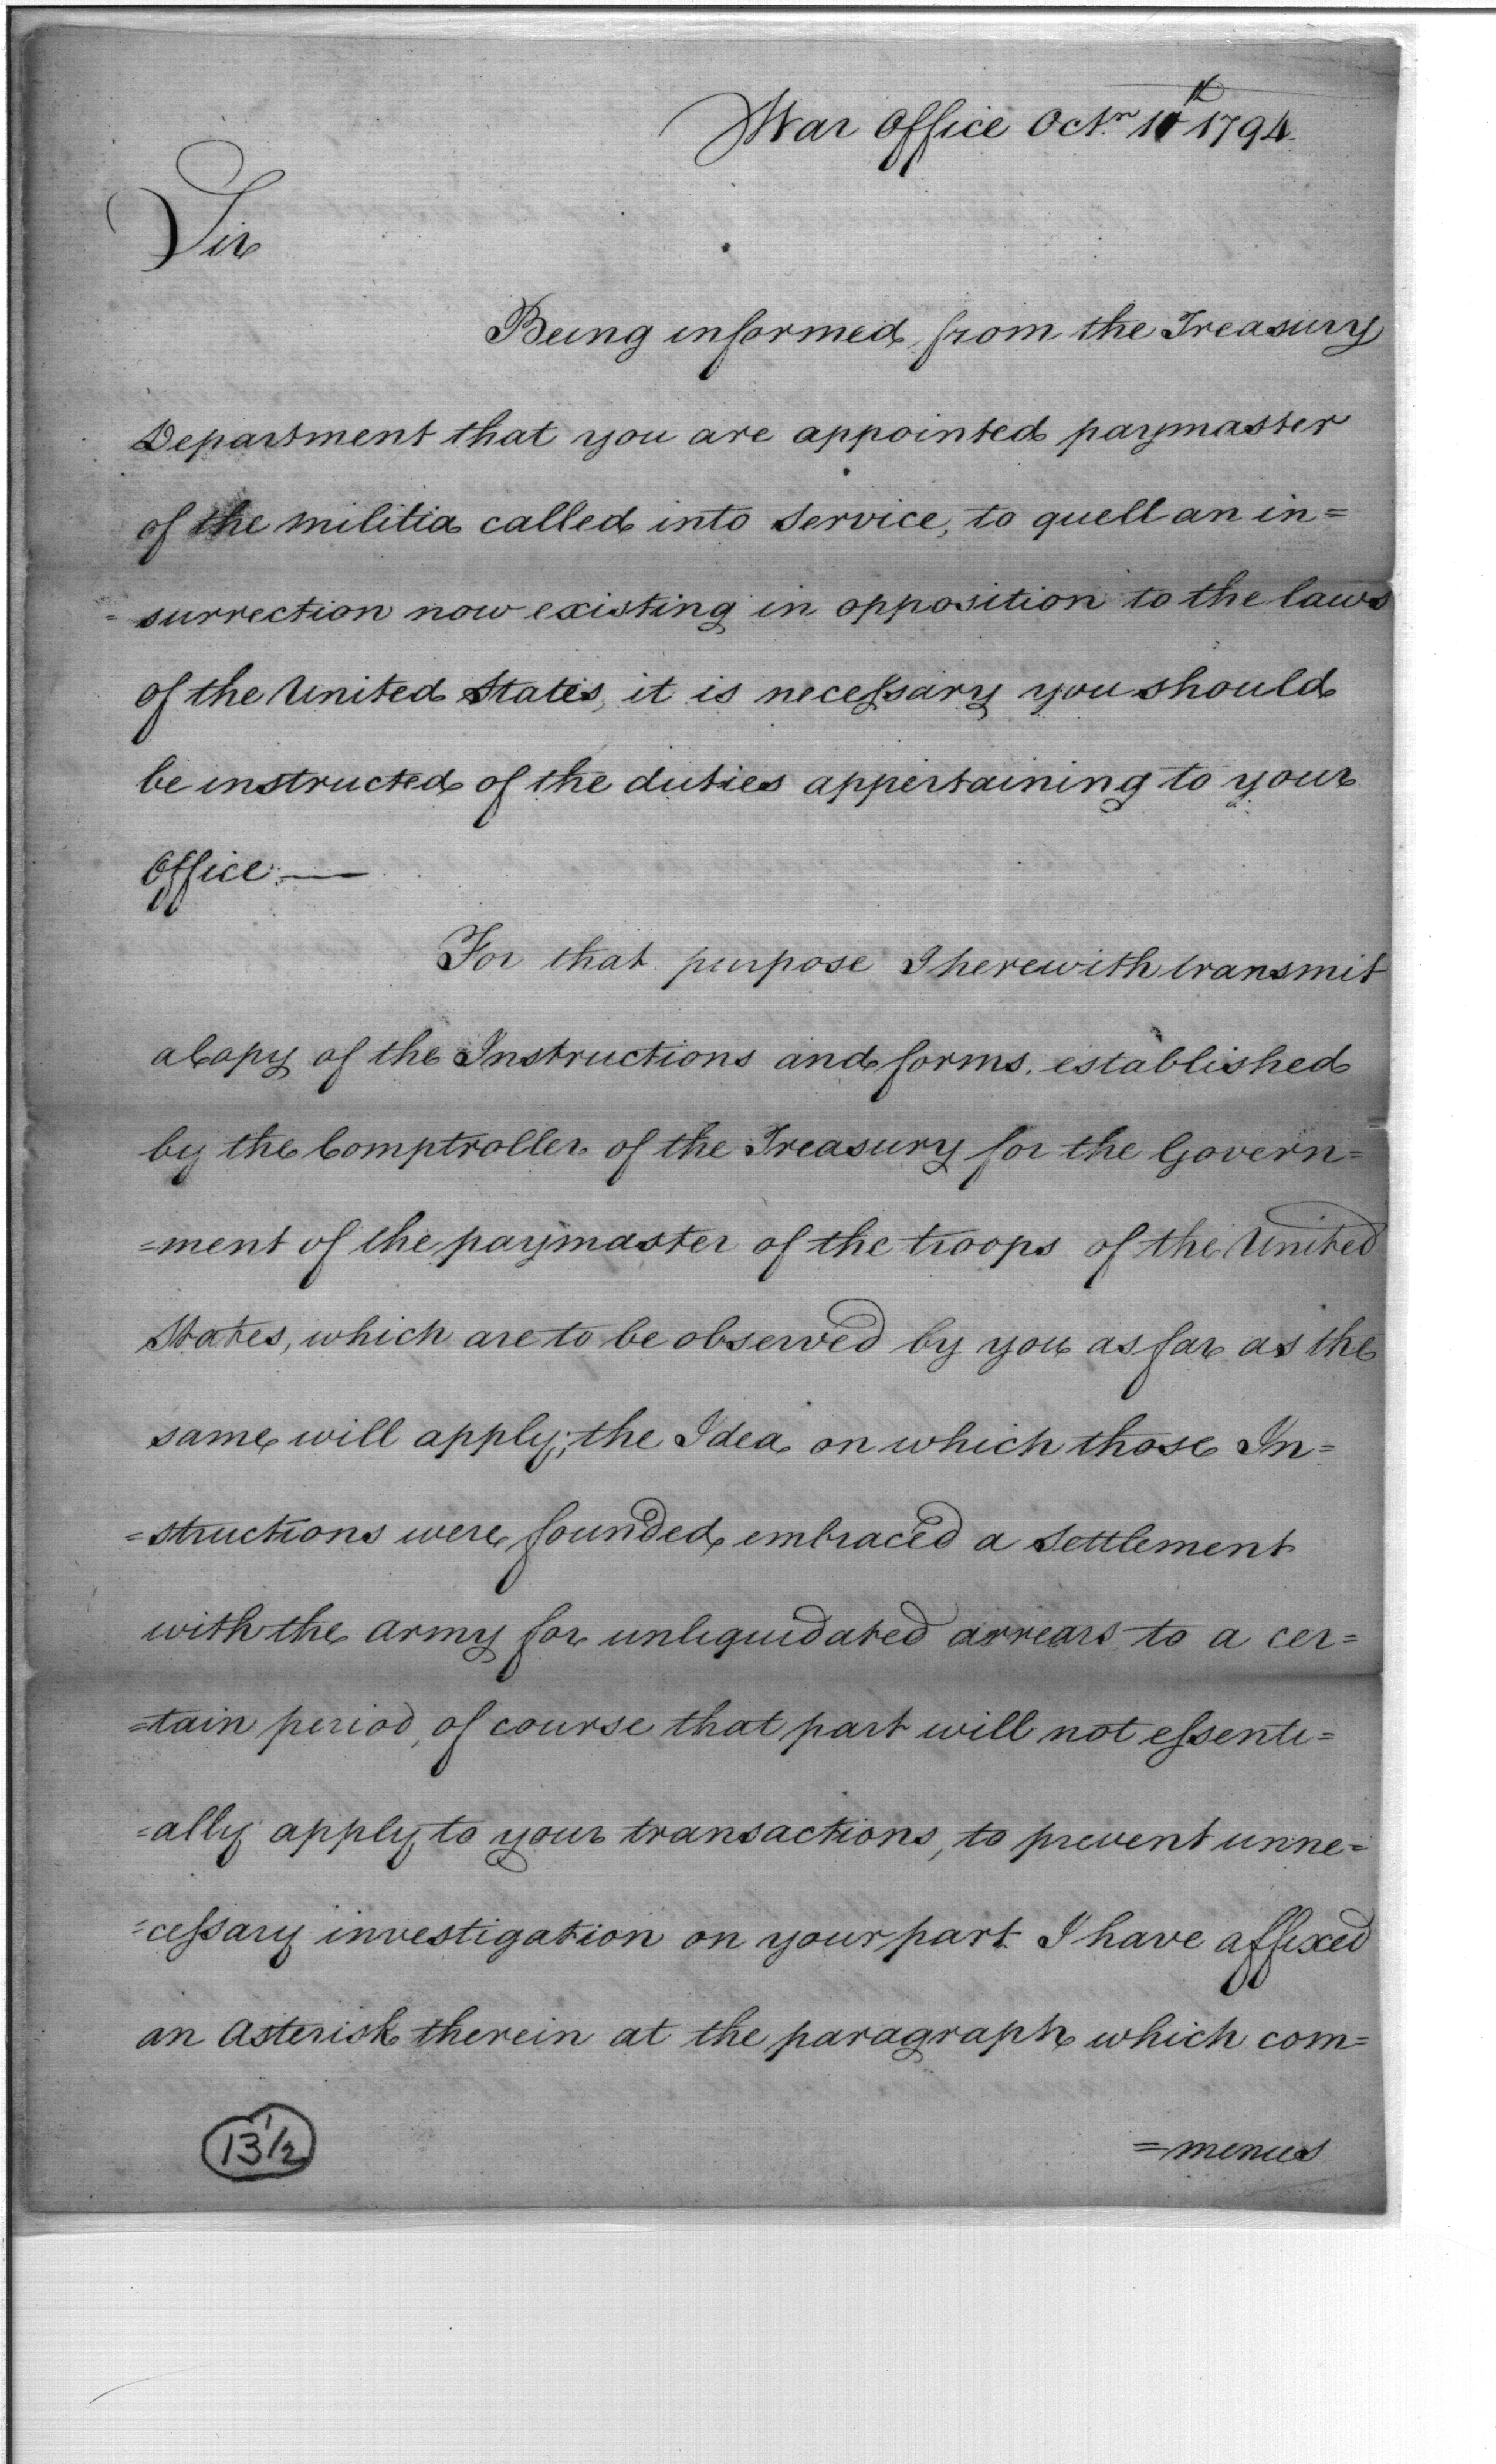 War Office Octr. 10th 1794
Sir
Being informed from the Treasury
Department that you are appointed paymaster
of the militia called into service, to quell an in=
=surrection now existing in opposition to the laws
of the United States, it is necessary you should
be instructed of the duties appertaining to your
Office. —
For that purpose I herewith transmit
a Copy of the Instructions and forms established
by the Comptroller of the Treasury for the Govern=
=ment of the paymaster of the troops of the United
States, which are to be observed by you as far as the
same will apply; the Idea on which those In=
=structions were founded embraced a settlement
with the army for unliquidated arrears to a cer=
=tain period, of course that part will not essenti=
=ally apply to your transactions, to prevent unne=
=cessary investigation on your part I have affixed
an Asterisk therein at the paragraph which com=
=mences
13 1/2